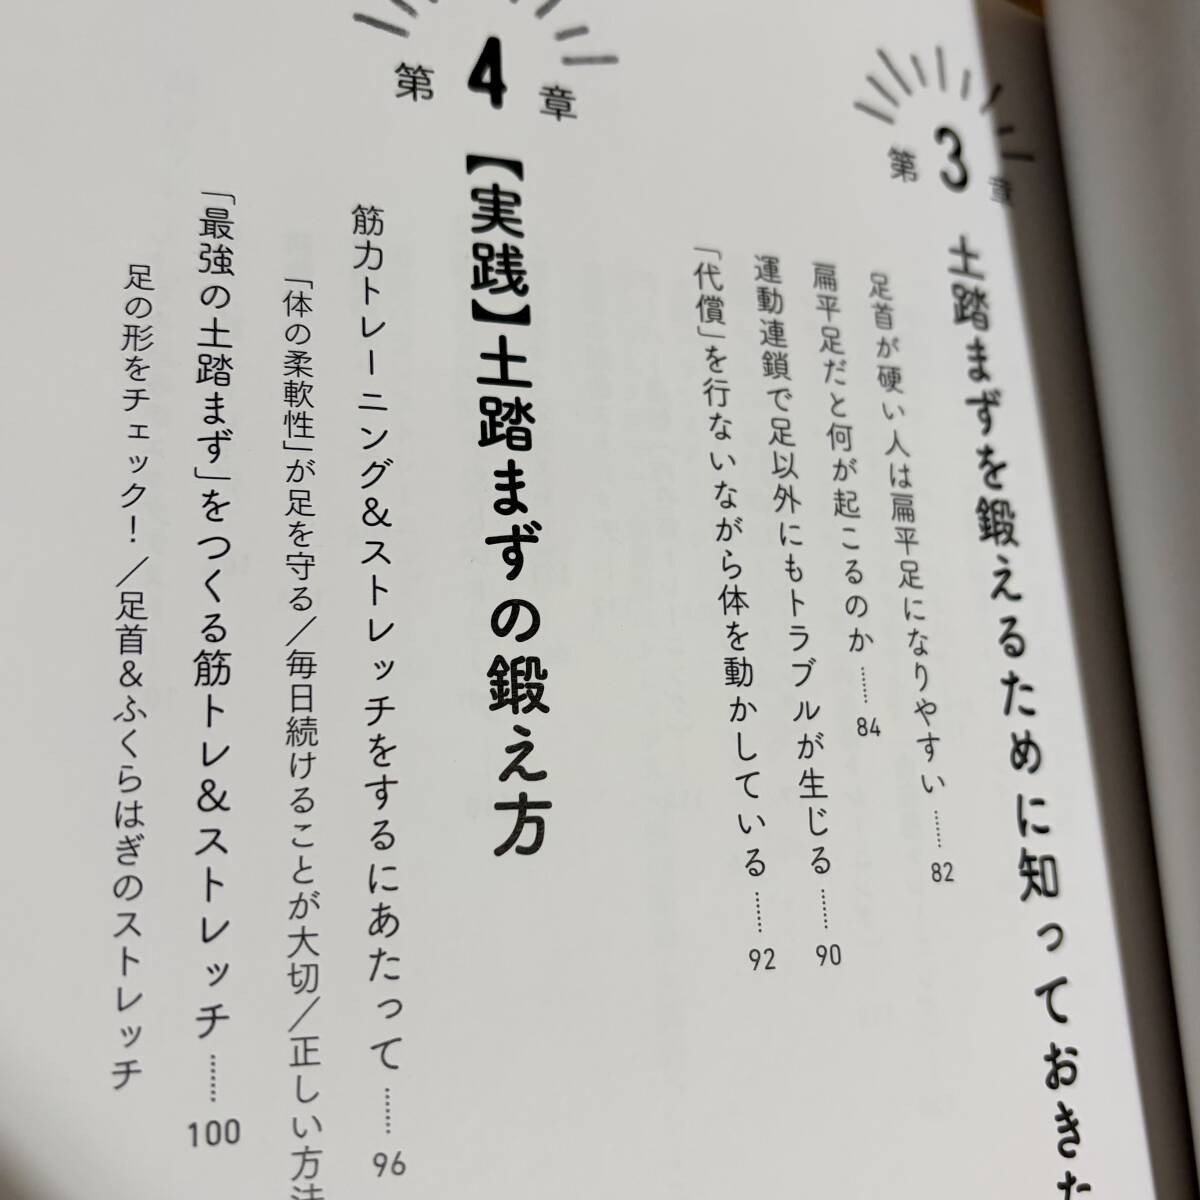 第3章
土踏まずを鍛えるために知っておきた
足首が硬い人は扁平足になりやすい……82
扁平足だと何が起こるのか……84
運動連鎖で足以外にもトラブルが生じる……90
「代償」を行ないながら体を動かしている……92
第4章
【実践】土踏まずの鍛え方
筋力トレーニング&ストレッチをするにあたって……96
「体の柔軟性」が足を守る/毎日続けることが大切/正しい方法
「最強の土踏まず」をつくる筋トレ&ストレッチ……100
足の形をチェック!/足首&ふくらはぎのストレッチ